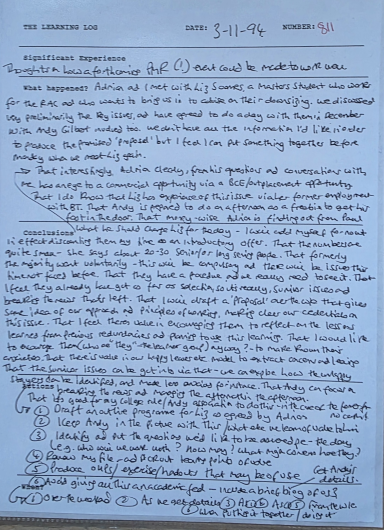 THE LEARNING LOG DATE: 3-11-94 NUMBER: 811
Significant Experience
Thoughts on how a forthcoming AHR (1) event could be made to work well
What happened? Adrian and I met with Liz Soames, a Masters Student who works
for the RAC and who wants to bring us in to advise on their downsizing. We discussed
very preliminarily the key issues, and have agreed to do a day with them in December
with Andy Gilbert involved too. We don't have all the information I'd like in order
to produce the promised 'proposal' but I feel I can put something together before
Monday when we meet Liz again.
→ That interestingly, Adrian clearly, from his questions and conversations with
me has an eye to a commercial opportunity via a BCE/outplacement opportunity
That I do know that Liz has experience of this issue via her former employment
with BT. That Andy is prepared to do an afternoon as a freebie to get his
foot in the door. That money-wise Adrian is finding out from Paul
Conclusions what he should charge Liz for the day -
in effect discounting them my time as an introductory offer. That the numbers are
quite small - she says about 20-30 senior/long serving people. That formerly
the majority went voluntarily - this will be compulsory and these will be issues they
have not faced before. That they have a procedure and we really need to see it. That
I feel they already have got so far on selection, so it's really, survivor issues and
breaking the news that's left. That I will draft a 'proposal' over the w/e that gives
some idea of our approach and principles of working, making clear our credentials on
this issue. That I feel there's value in encouraging them to reflect on the lessons
learned from previous redundancies and plan to use this learning. That I would like
to encourage them
anxieties. That there is value in our happy leaver etc model to extract concerns and
That the survivor issues can be got into via that - we can explore how the unhappy
stayers can be identified, and made less anxious for instance. That Andy can focus on
breaking the news and managing the aftermath in the afternoon.
① Draft an outline programme for Liz as agreed by Adrian
② Keep Andy in the picture with this / what else we learn of value to him
③ Identify and put the questions we'd like to be answered pre-the day
(e.g. who will we work with? How many? What might concern them?)
④ Review my file and pick out key points of value
⑤ Produce OHPs / exercise/handouts that may be of use
⑥ Avoid giving all this an academic feel - include a brief bio of us?
① Over the weekend ② As we get details ③ ASAP ④ ASAP ⑤ From the w/e
⑥ When put it together / draft it